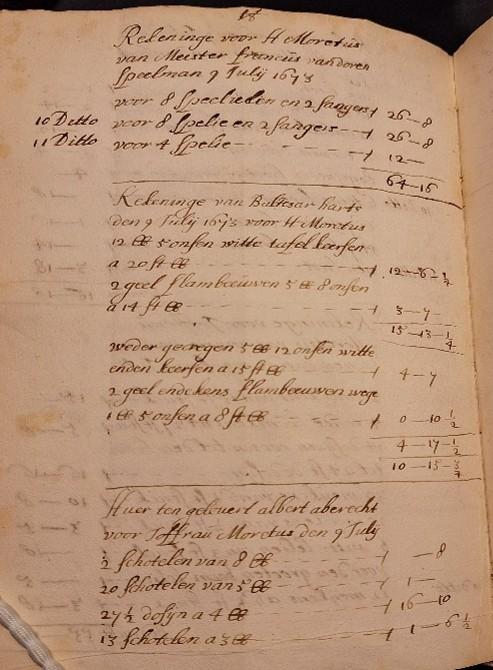 18
Rekeninge voor H Moretus
van Meister francus van doren
Speelman 9 Julij 1673
voor 8 Speelieden en 2 sangers 26—8
10 Ditto voor 8 Spelie en 2 sangers 26—8
11 Ditto voor 4 Spelie 12—
64—16
Rekeninge van Baltesar harts
den 9 Julij 1673 voor H Moretus
12 ℔ 5 onsen witte tafel keersen
a 20 st ℔ 12—6—1/4
2 geel flambeeuwen 5 ℔ 8 onsen
a 14 st ℔ 3—7
15—13—1/4
weder gecregen 5 ℔ 12 onsen witte
enden keersen a 15 st ℔ 4—7
2 geel endekens flambeeuwen wege
1 ℔ 5 onsen a 8 st ℔ 0—10 1/2
4—17—1/2
10—15—3/4
Huer ten geleuert albert aberecht
voor Joffrau Moretus den 9 Julij
1/2 schotelen van 8 ℔ —8
20 schotelen van 5 ℔ 1—
27 1/2 dosyn a 4 ℔ 16—10
13 schotelen a 3 ℔ 1—6 1/2